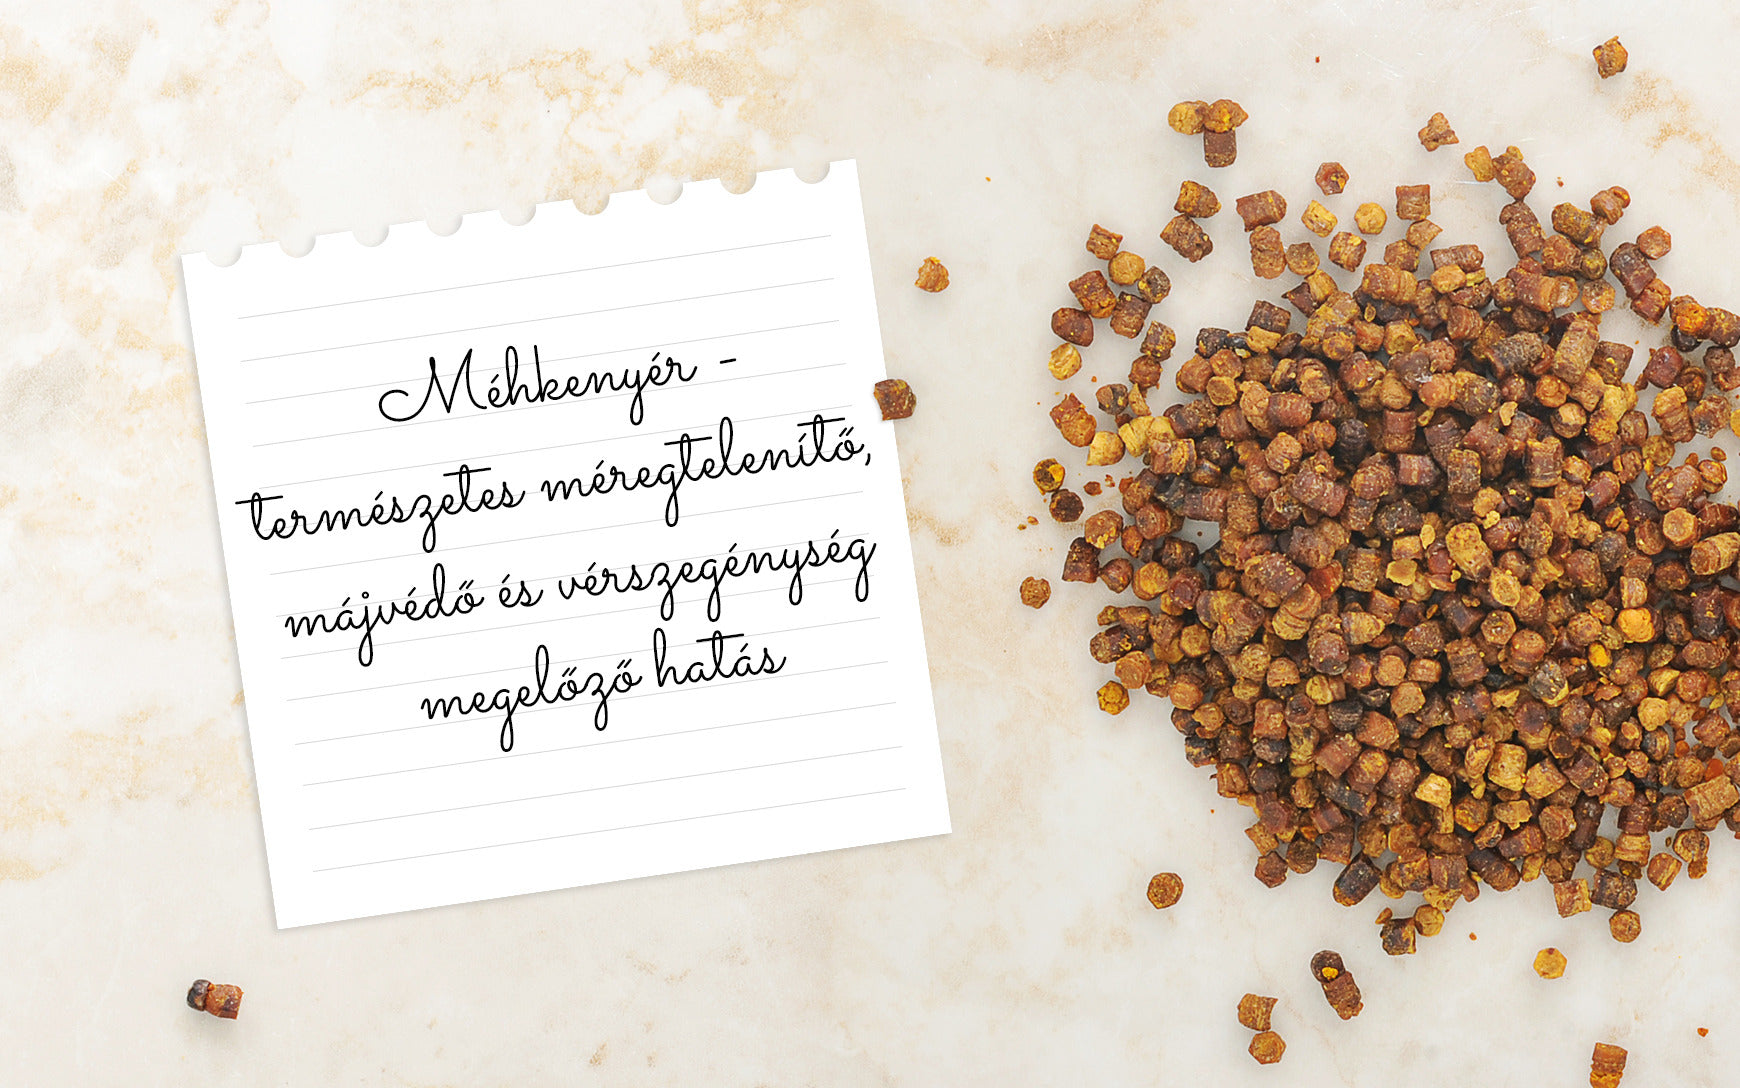 Méhkenyér -
természetes méregtelenítő,
májvédő és vérszegénység
megelőző hatás